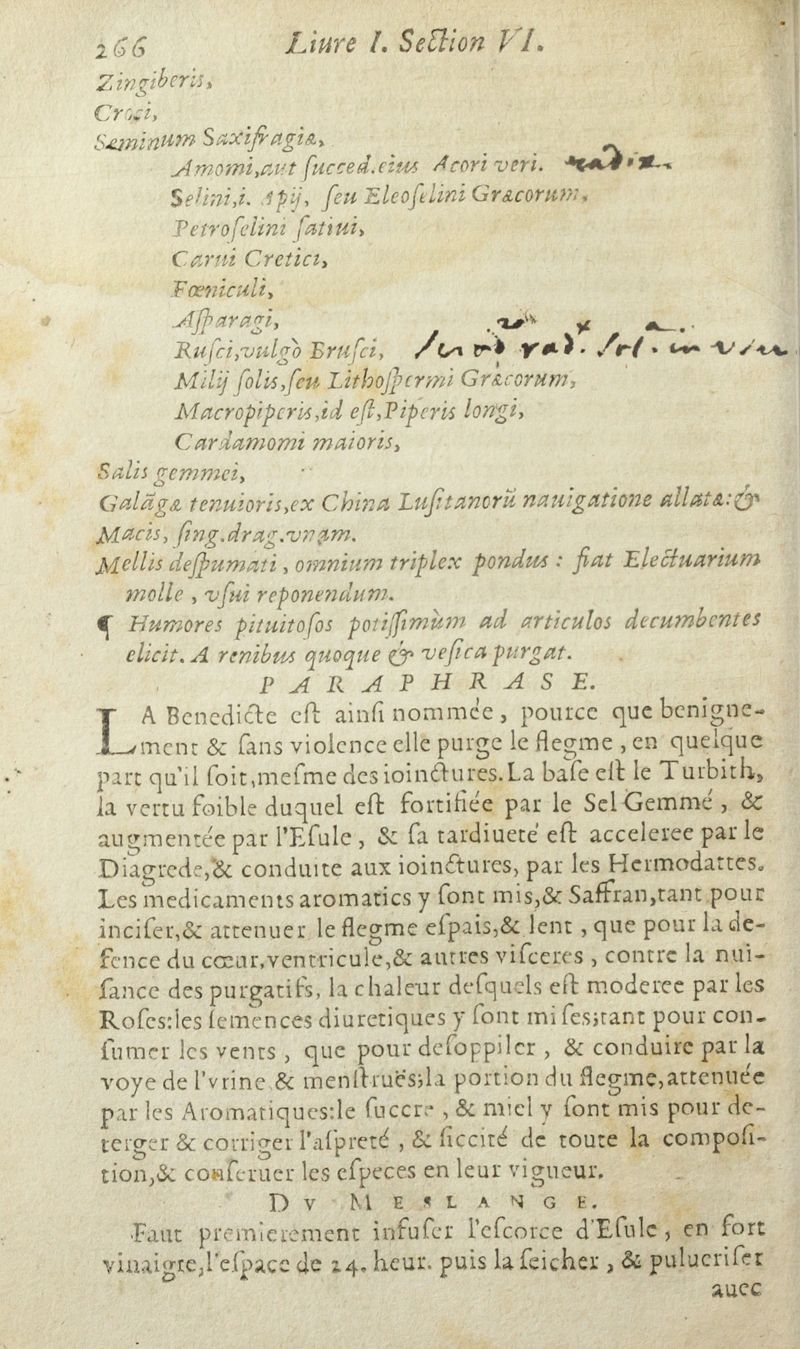 266 Liure I. Section VI.
Zingiberis,
Croci,
Seminum Saxifragiæ,
Amomi,aut succed.eius Acori veri.
Selini,i. Apij, seu Eleoselini Græcorum,
Petroselini satiui,
Carui Cretici,
Fœniculi,
Asparagi,
Rusci,vulgò Brusci,
Milij solis,seu Lithospermi Græcorum,
Macropiperis,id est,Piperis longi,
Cardamomi maioris,
Salis gemmei,
Galãgæ tenuioris,ex China Lusitanorū nauigatione allatæ:&
Macis, sing.drag.vnam.
Mellis despumati, omnium triplex pondus : fiat Electuarium
molle , vsui reponendum.
¶ Humores pituitosos potissimùm ad articulos decumbentes
elicit. A renibus quoque & vesica purgat.
PARAPHRASE.
LA Benedicte est ainsi nommée, pource que benigne-
ment & sans violence elle purge le flegme , en quelque
part qu'il soit,mesme des ioinctures.La base est le Turbith,
la vertu foible duquel est fortifiée par le Sel Gemmé , &
augmentée par l'Esule , & sa tardiueté est acceleree par le
Diagrede,& conduite aux ioinctures, par les Hermodattes.
Les medicaments aromatics y sont mis,& Saffran,tant pour
inciser,& attenuer le flegme espais,& lent , que pour la de-
fence du cœur,ventricule,& autres visceres , contre la nui-
sance des purgatifs, la chaleur desquels est moderee par les
Roses:les semences diuretiques y sont mises;tant pour con-
sumer les vents , que pour desoppiler , & conduire par la
voye de l'vrine & menstruës;la portion du flegme,attenuée
par les Aromatiques:le succre , & miel y sont mis pour de-
terger & corriger l'aspreté , & siccité de toute la composi-
tion,& conseruer les especes en leur vigueur.
DV MESLANGE.
Faut premierement infuser l'escorce d'Esule, en fort
vinaigre,l'espace de 24. heur. puis la seicher , & pulueriser
auec